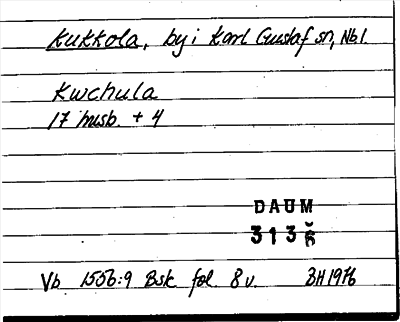 Kukkola, by i Karl Gustaf sn, Nbl.
Kwchula
17 husb. + 4
DAUM
3136
Vb 1556:9 Bsk fol. 8 v. BH 1976